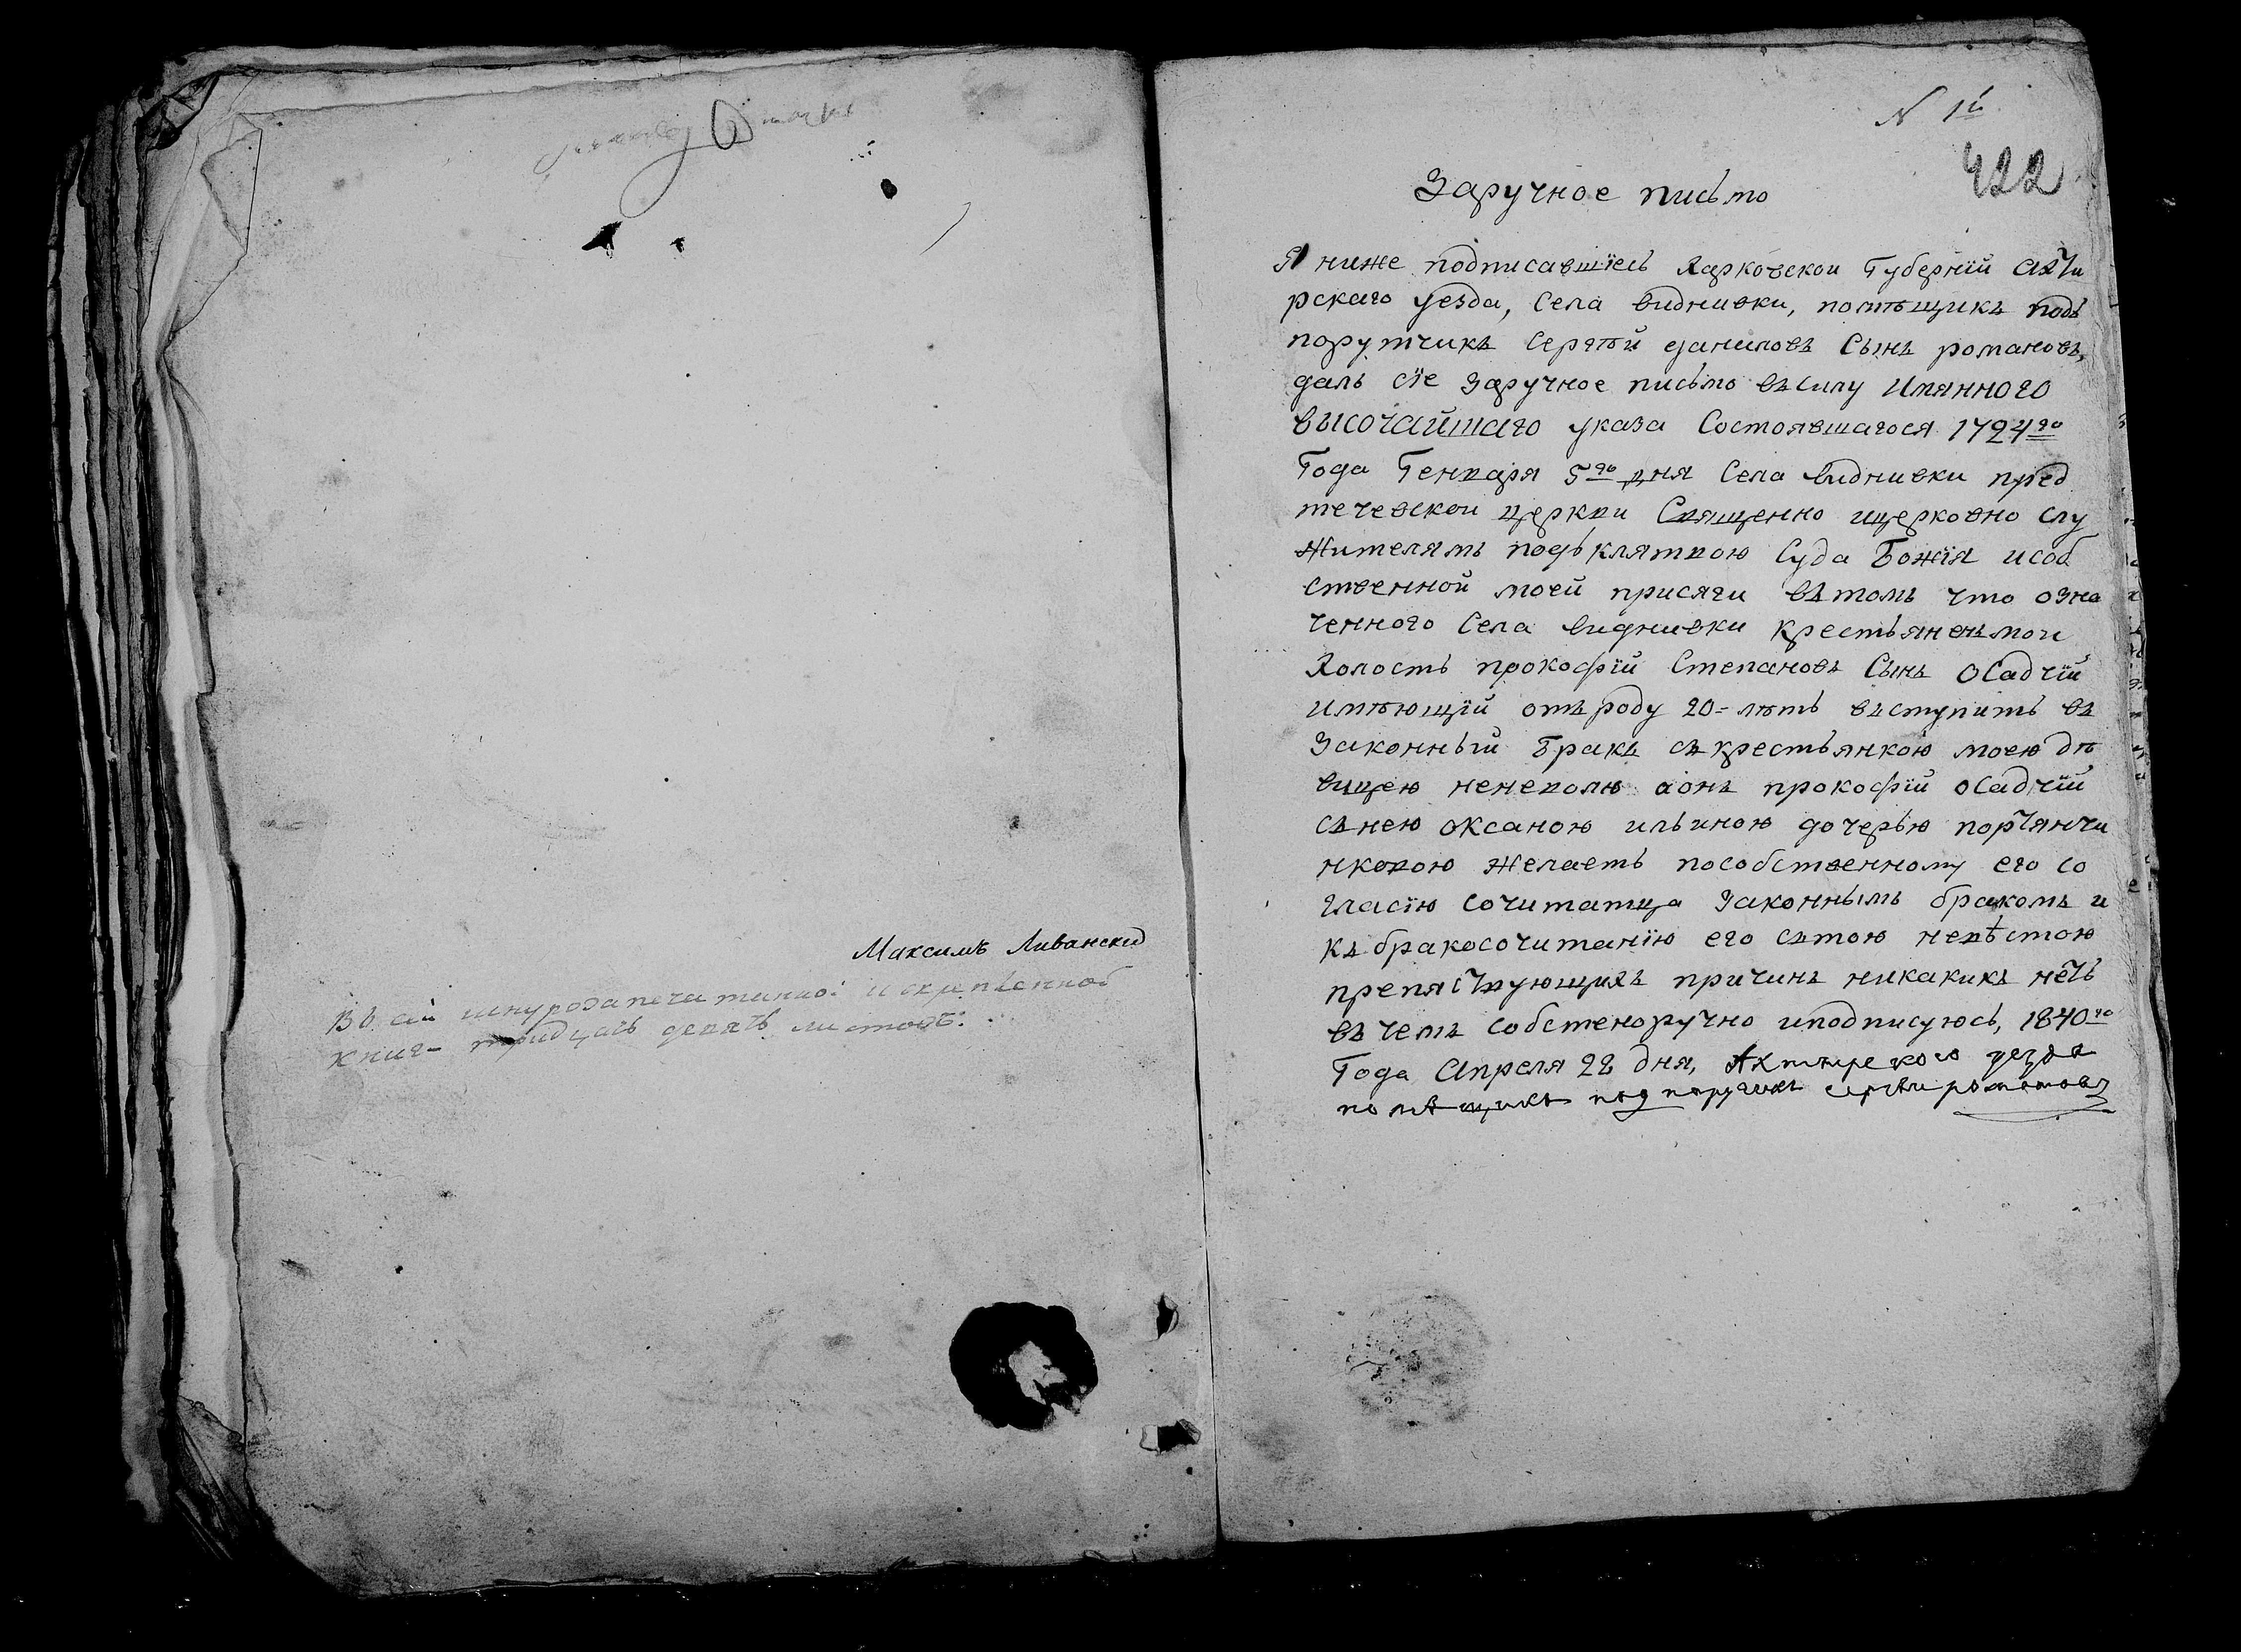 Максимъ Ливански
Въ сій шнурозапечатанной и скрепленной
книг- тридцать девять листовъ.
N 1й
422
Заручное письмо
Я ниже подписавшіесь Харковской Губерніи Ахти
рскаго уезда, Села видниевки, помѣщикъ подъ
порутчикъ Сергѣй даниловъ Сынъ романовъ,
далъ сіе заручное письмо въсилу Имянного
высочайшаго указа Состоявшагося 1724го
Года Генваря 5го дня Села видниевки пред
течевской церкви Священно ицерковно слу
жителямъ подъ клятвою Суда Божія исоб
ственной моей присяги въ томъ что озна
ченного Села видниевки крестьяненъ мои
Холость прокофій Степановъ Сынъ Осадчій
имѣющій отъ роду 20= лѣтъ въступить въ
Законный Бракъ съ крестьянкою моею дѣ
вицею неневолю аонъ прокофій осадчій
съ нею оксаною ильиною дочерью портянчи
нковою желаетъ пособственному его со
гласію сочитатца законнымъ бракомъ и
къ бракосочитанію его сътою невѣстою
препяствующихъ причинъ никакихъ нетъ
въ чемъ собстеноручно иподписуюсь, 1840го
Года Апреля 22 дня, Ахтирского уезда
помѣщикъ подпоручикъ сергѣи романовъ